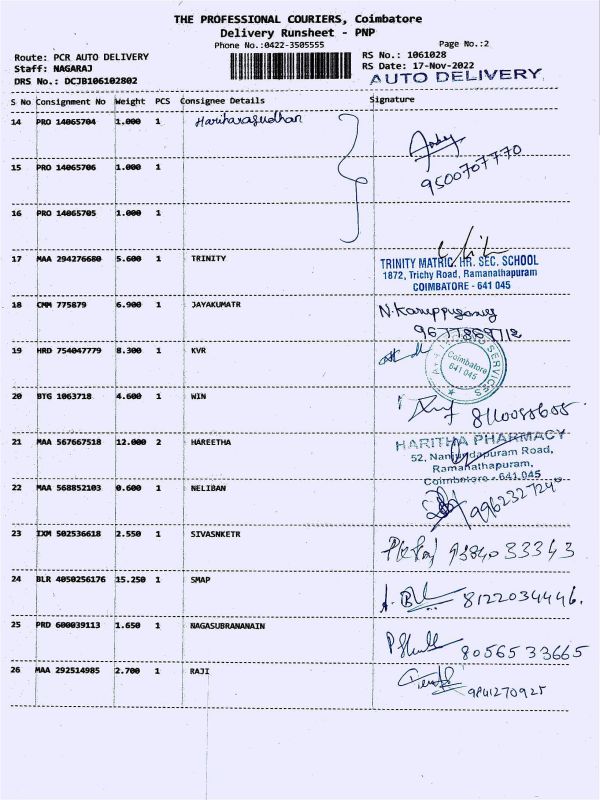 THE PROFESSIONAL COURIERS, Coimbatore
Delivery Runsheet - PNP
Phone No.:0422-3505555
Page No.:2
Route: PCR AUTO DELIVERY
RS No.: 1061028
Staff: NAGARAJ
RS Date: 17-Nov-2022
DRS No.: DCJB106102802
AUTO DELIVERY
S No Consignment No Weight PCS Consignee Details Signature
14 PRO 14065704 1.000 1
15 PRO 14065706 1.000 1
9500707770
16 PRO 14065705 1.000 1
17 MAA 294276680 5.600 1 TRINITY
TRINITY MATRIC. HR. SEC. SCHOOL
1872, Trichy Road, Ramanathapuram
COIMBATORE - 641 045
18 CMM 775879 6.900 1 JAYAKUMATR
19 HRD 754047779 8.300 1 KVR
SERVICES
Coimbatore
641 045
20 BTG 1063718 4.600 1 WIN
21 MAA 567667518 12.000 2 HAREETHA
HARITHA PHARMACY
52, Nanjundapuram Road,
Ramanathapuram,
Coimbatore - 641 045
22 MAA 568852103 0.600 1 NELIBAN
23 IXM 502536618 2.550 1 SIVASNKETR
24 BLR 4050256176 15.250 1 SMAP
8122034446.
25 PRD 600039113 1.650 1 NAGASUBRANANAIN
8056533665
26 MAA 292514985 2.700 1 RAJI
9841270925